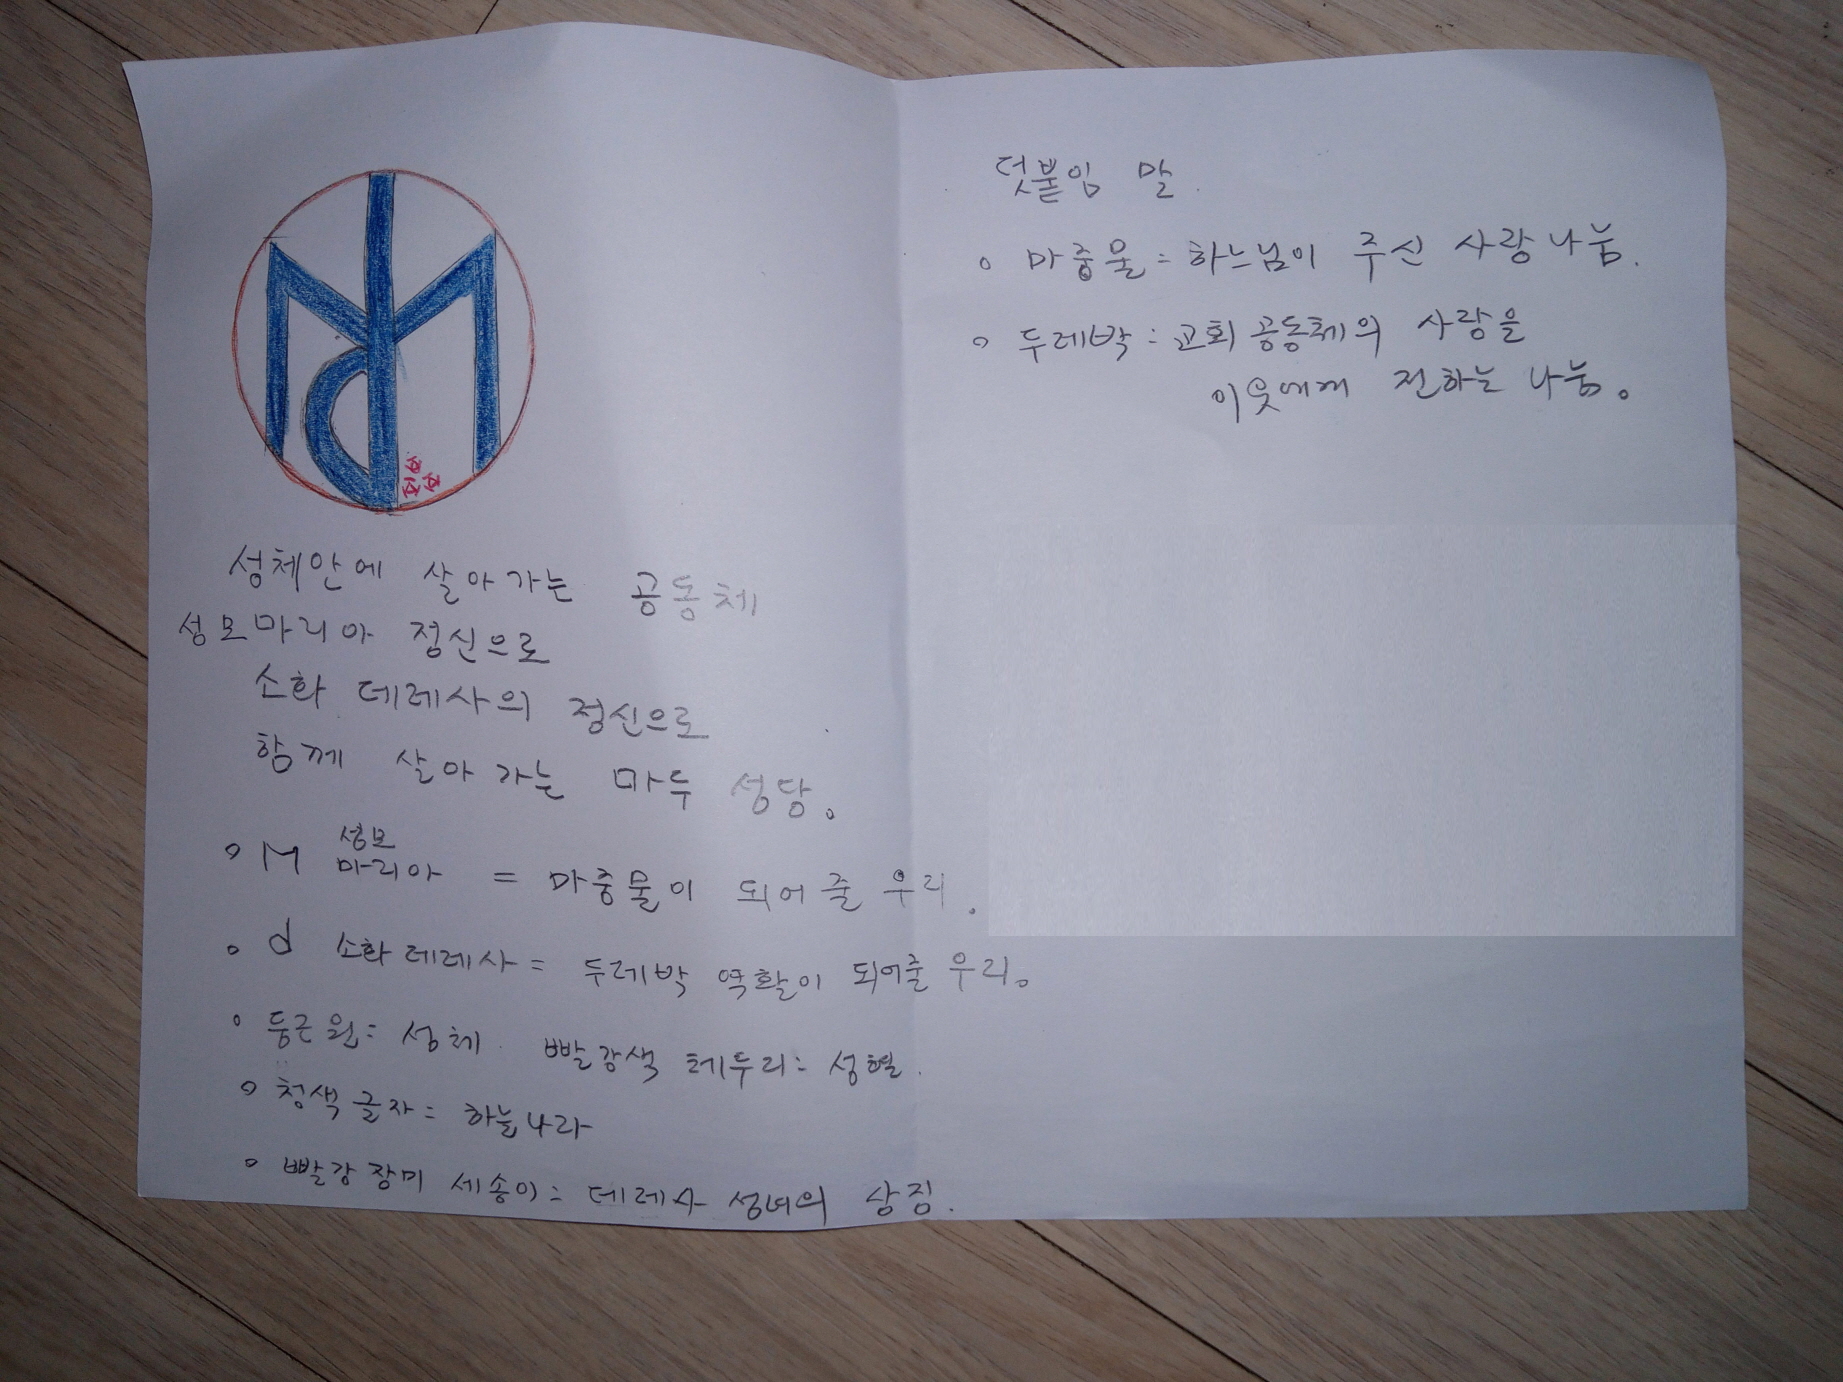 성체안에 살아가는 공동체
성모마리아 정신으로
소화 데레사의 정신으로
함께 살아가는 마두 성당.
◦ M 성모 마리아 = 마중물이 되어줄 우리.
◦ d 소화데레사 = 두레박 역활이 되어줄 우리.
◦ 둥근원 = 성체. 빨강색 테두리 = 성혈.
◦ 청색글자 = 하늘나라
◦ 빨강장미 세송이 = 데레사 성녀의 상징.
덧붙임 말.
◦ 마중물 = 하느님이 주신 사랑나눔.
◦ 두레박 : 교회공동체의 사랑을
이웃에게 전하는 나눔.